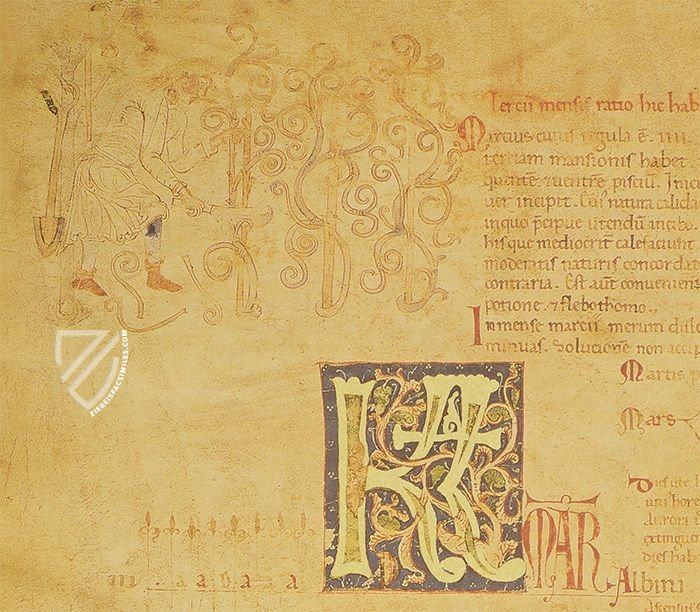 Tercii mensis ratio hic hab
Marcius cuius regula ē. iiii.
terciam mansionis habet
quentē. & uentrē pisciū. Inici
uer incipit. Cui natura calida
inquo p̄cipue utendū in cibo.
hisque mediocrit̄ calefaciunt
moderatis naturis concordat
contraria. Est aūt conueniens
potione. & flebothomo.
In mense marcii merum dulc
minuas. Solucionē non acci
Martis p
Mars
KL
MAR
Albini
uiri hore
Aurori
extingui
dies hab
m . a a b a . a
ZIEREISFACSIMILES.COM